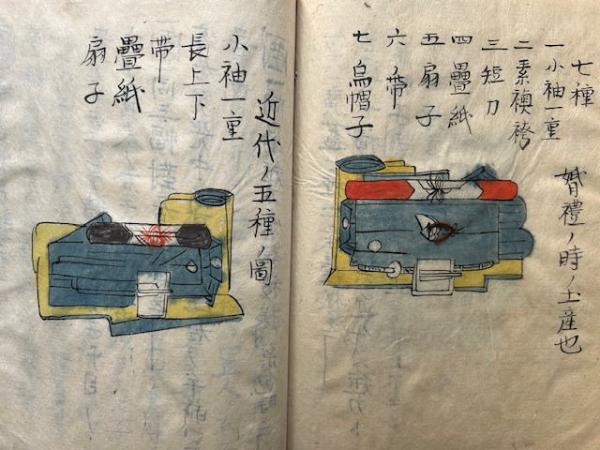 七種
一小袖一重
二素襖袴
三短刀
四疊紙
五扇子
六帶
七烏帽子
婚禮ノ時ノ土産也
近代ノ五種ノ圖
小袖一重
長上下
帯
疊紙
扇子